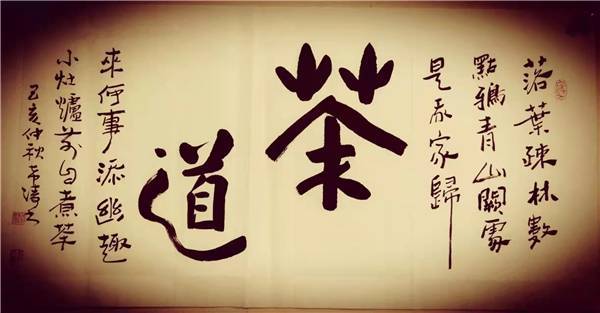 落葉疎林數
點鴉青山闕處
是我家歸
茶
道
來何事添幽趣
小灶爐前自煮茶
己亥仲秋